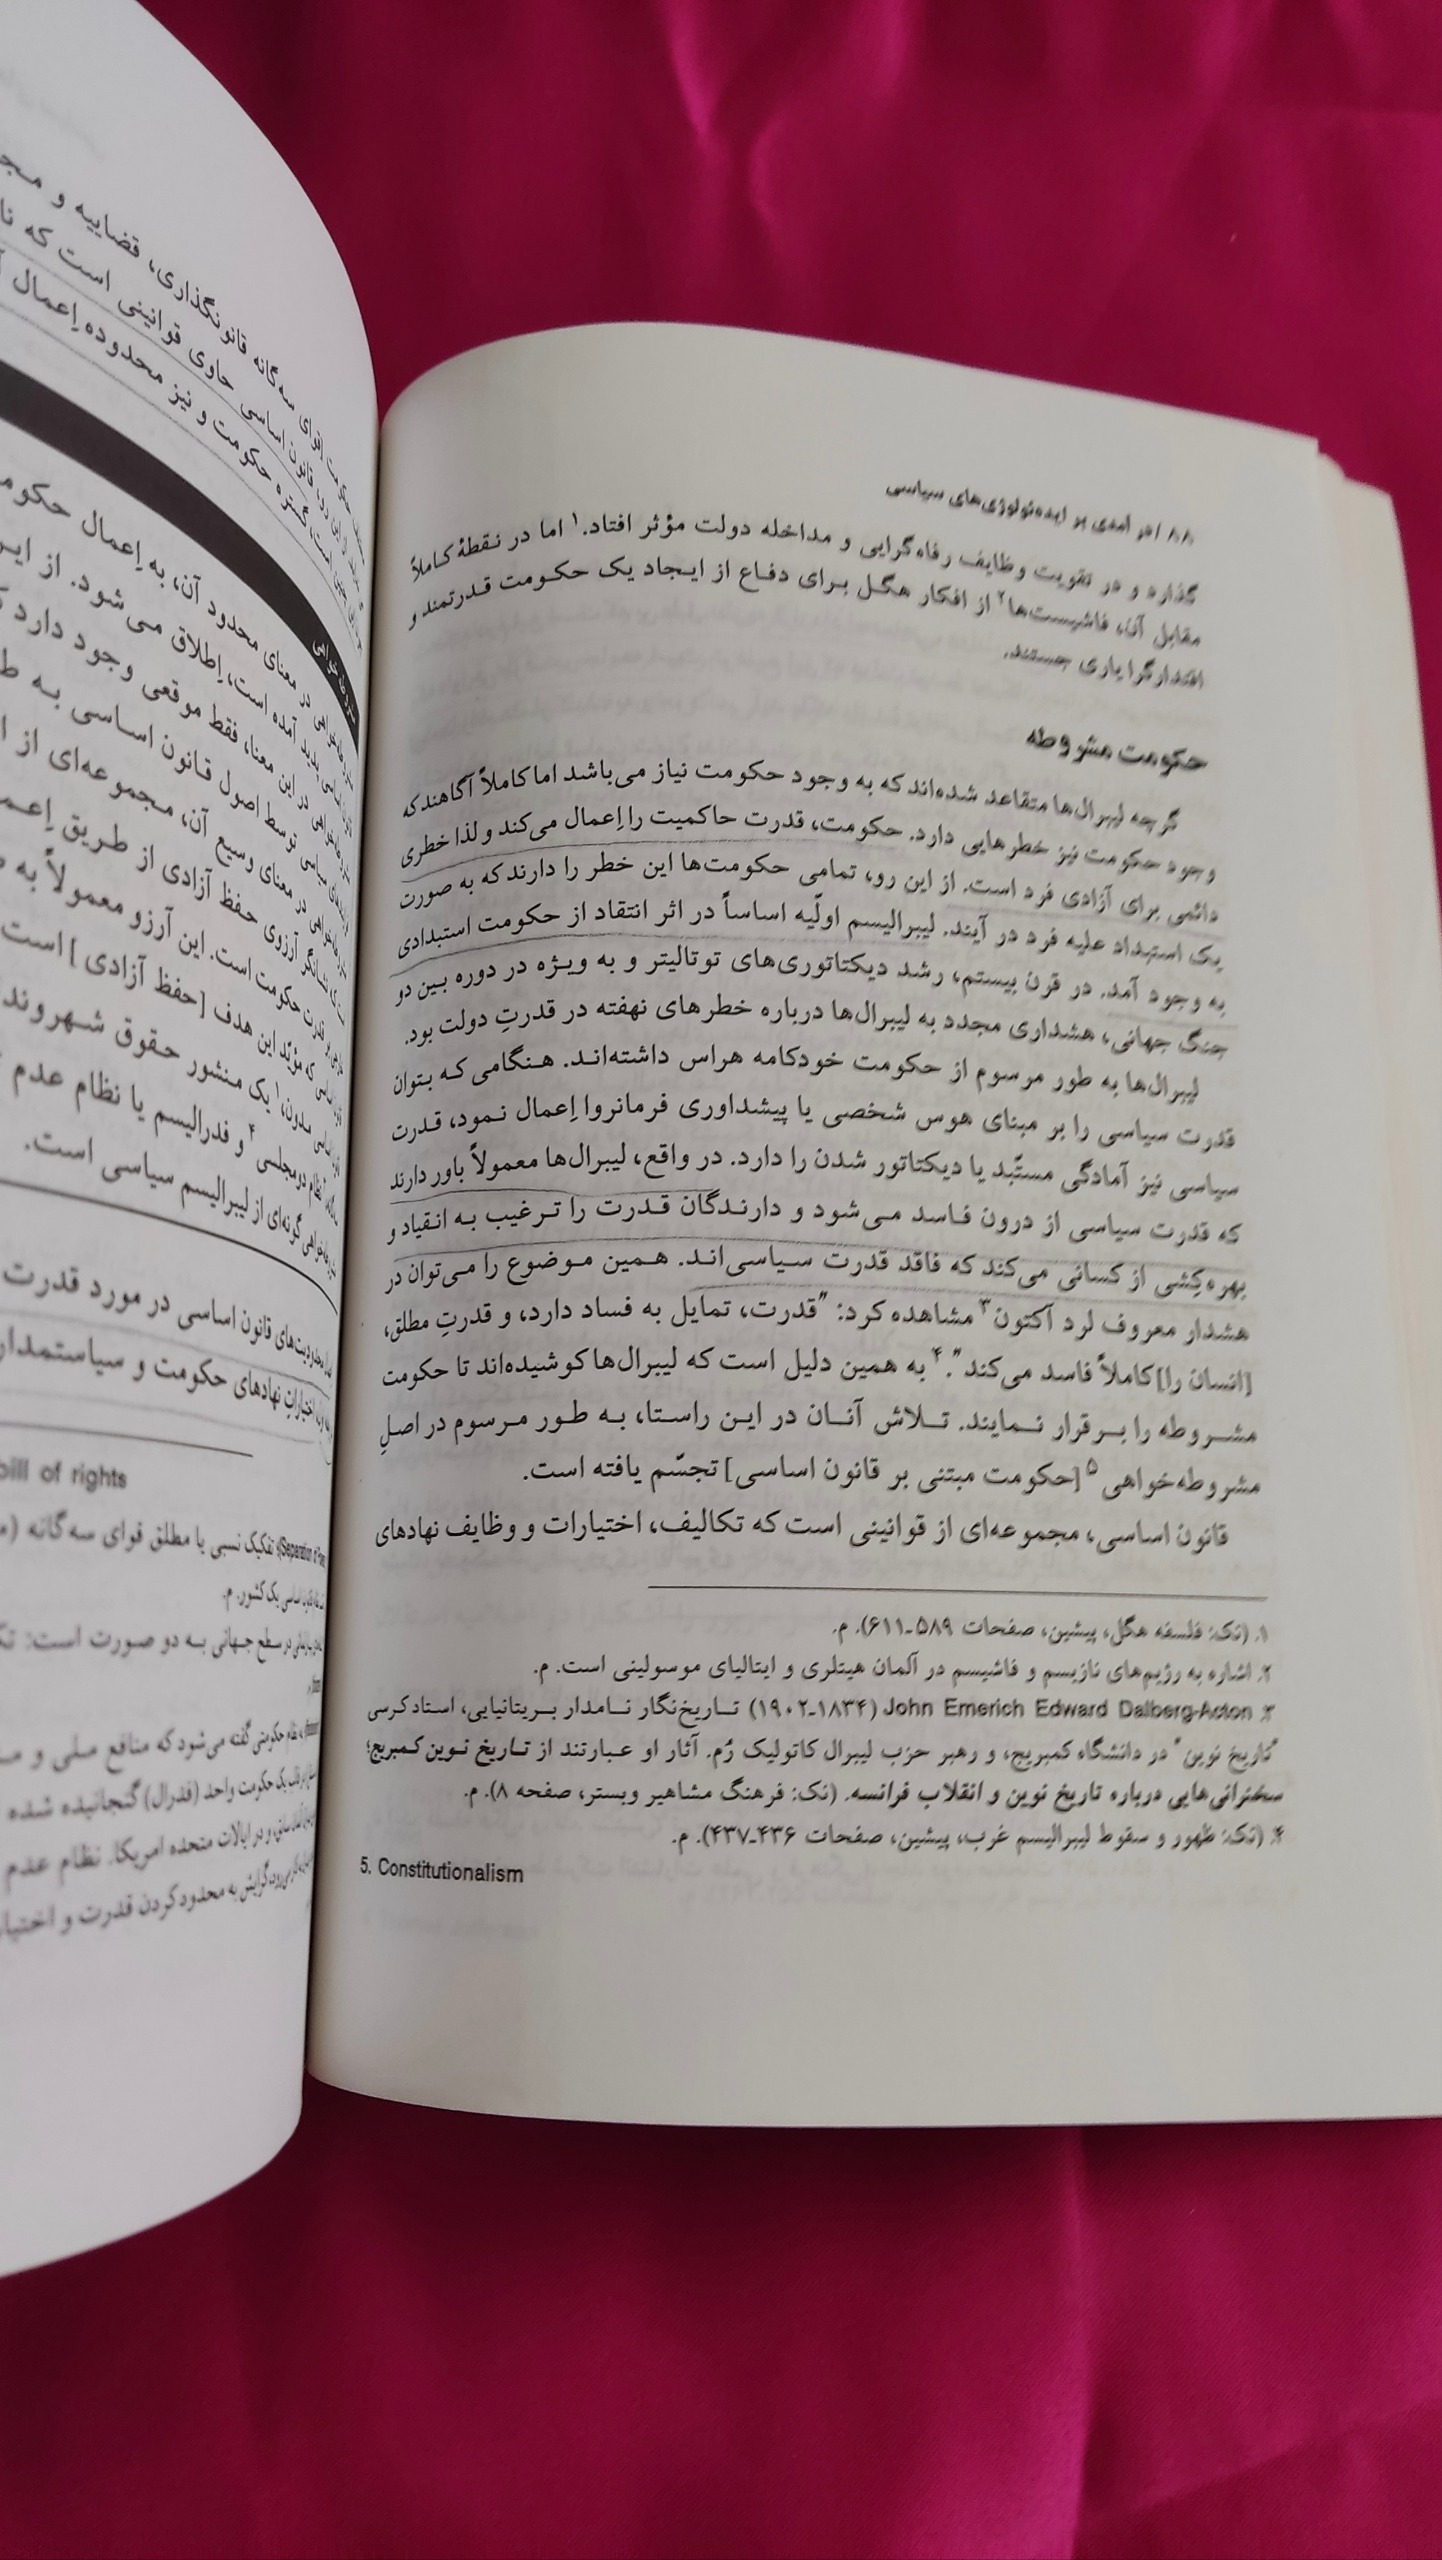 ۸۸ / درآمدی بر ایدئولوژی‌های سیاسی
گذارد و در تقویت وظایف رفاه‌گرایی و مداخله دولت مؤثر افتاد.۱ اما در نقطهٔ کاملاً
مقابل آن، فاشیست‌ها۲ از افکار هگل برای دفاع از ایجاد یک حکومت قدرتمند و
اقتدارگرا یاری جستند.
حکومت مشروطه
گرچه لیبرال‌ها متقاعد شده‌اند که به وجود حکومت نیاز می‌باشد اما کاملاً آگاهند که
وجود حکومت نیز خطرهایی دارد. حکومت، قدرت حاکمیت را اِعمال می‌کند و لذا خطری
دائمی برای آزادی فرد است. از این رو، تمامی حکومت‌ها این خطر را دارند که به صورت
یک استبداد علیه فرد در آیند. لیبرالیسم اولّیه اساساً در اثر انتقاد از حکومت استبدادی
به وجود آمد. در قرن بیستم، رشد دیکتاتوری‌های توتالیتر و به ویژه در دوره بین دو
جنگ جهانی، هشداری مجدد به لیبرال‌ها درباره خطرهای نهفته در قدرتِ دولت بود.
لیبرال‌ها به طور مرسوم از حکومت خودکامه هراس داشته‌اند. هنگامی که بتوان
قدرت سیاسی را بر مبنای هوس شخصی یا پیشداوری فرمانروا اِعمال نمود، قدرت
سیاسی نیز آمادگی مستّبد یا دیکتاتور شدن را دارد. در واقع، لیبرال‌ها معمولاً باور دارند
که قدرت سیاسی از درون فاسد می‌شود و دارندگان قدرت را ترغیب به انقیاد و
بهره‌کِشی از کسانی می‌کند که فاقد قدرت سیاسی‌اند. همین موضوع را می‌توان در
هشدار معروف لرد آکتون۳ مشاهده کرد: "قدرت، تمایل به فساد دارد، و قدرتِ مطلق،
[انسان را] کاملاً فاسد می‌کند".۴ به همین دلیل است که لیبرال‌ها کوشیده‌اند تا حکومت
مشروطه را برقرار نمایند. تلاش آنان در این راستا، به طور مرسوم در اصلِ
مشروطه‌خواهی۵ [حکومت مبتنی بر قانون اساسی] تجسّم یافته است.
قانون اساسی، مجموعه‌ای از قوانینی است که تکالیف، اختیارات و وظایف نهادهای
۱. (نک: فلسفه هگل، پیشین، صفحات ۵۸۹ـ۶۱۱). م.
۲. اشاره به رژیم‌های نازیسم و فاشیسم در آلمان هیتلری و ایتالیای موسولینی است. م.
۳. John Emerich Edward Dalberg-Acton (۱۸۳۴ـ۱۹۰۲) تاریخ‌نگار نامدار بریتانیایی، استاد کرسی
"تاریخ نوین" در دانشگاه کمبریج، و رهبر حزب لیبرال کاتولیک رُم. آثار او عبارتند از تاریخ نوین کمبریج؛
سخنرانی‌هایی درباره تاریخ نوین و انقلاب فرانسه. (نک: فرهنگ مشاهیر وبستر، صفحه ۸). م.
۴. (نک: ظهور و سقوط لیبرالیسم غرب، پیشین، صفحات ۴۳۶ـ۴۳۷). م.
5. Constitutionalism
قوای سه‌گانه قانونگذاری، قضاییه و
قانون اساسی حاوی قوانینی است که
است، گستره حکومت و نیز محدوده اِعمال
در معنای محدود آن، به اِعمال
پدید آمده است، اِطلاق می‌شود. از
در این معنا، فقط موقعی وجود دارد
سیاسی توسط اصول قانون اساسی به
در معنای وسیع آن، مجموعه‌ای از
آرزوی حفظ آزادی از طریق
قدرت حکومت است. این آرزو معمولاً به
که مؤیّد این هدف [حفظ آزادی] است
مدون،۱ یک منشور حقوق
نظام دومجلسی۴ و فدرالیسم یا نظام عدم
گونه‌ای از لیبرالیسم سیاسی است.
محدودیت‌های قانون اساسی در مورد قدرت
اختیاراتِ نهادهای حکومت و
bill of rights
تفکیک نسبی یا مطلق قوای سه‌گانه
اساسی یک کشور. م.
در سطح جهانی به دو صورت است:
نظام حکومتی گفته می‌شود که منافع ملی و
یک حکومت واحد (فدرال) گنجانیده شده
و در ایالات متحده امریکا. نظام عدم
گرایش به محدود کردن قدرت و